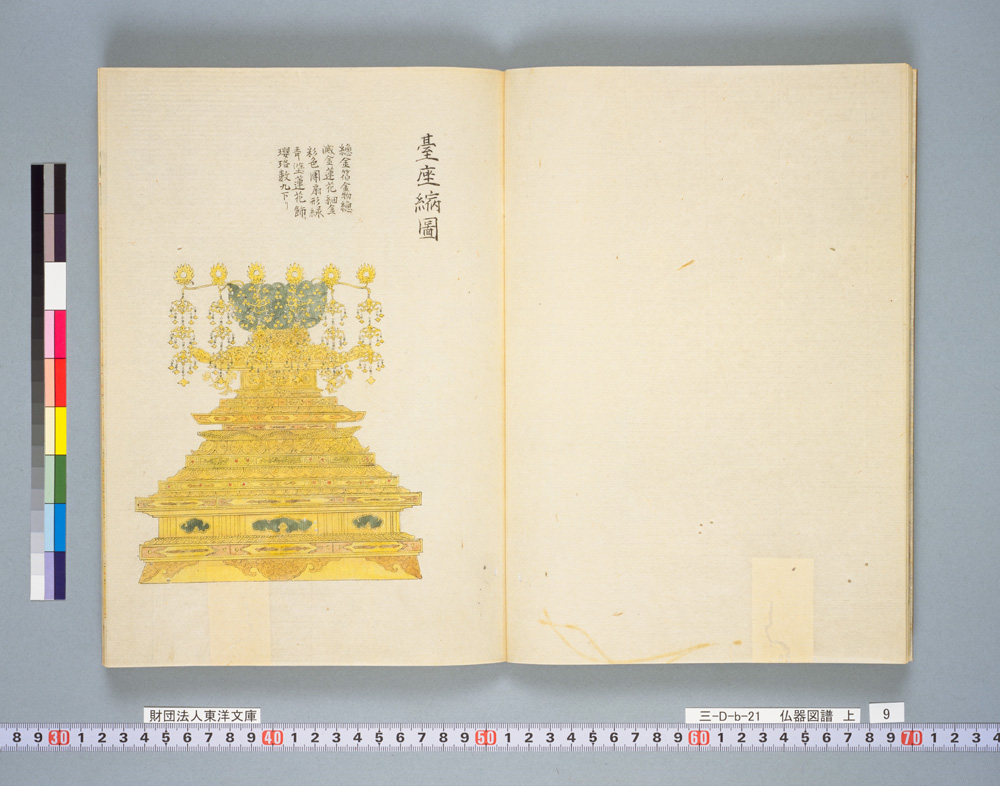 臺座縮圖
總金箔金物總
滅金蓮花細金
彩色團扇形緑
青塗蓮花飾
瓔珞數九下リ
財団法人東洋文庫
三-D-b-21 仏器図譜 上
9
8 9 30 1 2 3 4 5 6 7 8 9 40 1 2 3 4 5 6 7 8 9 50 1 2 3 4 5 6 7 8 9 60 1 2 3 4 5 6 7 8 9 70 1 2 3 4